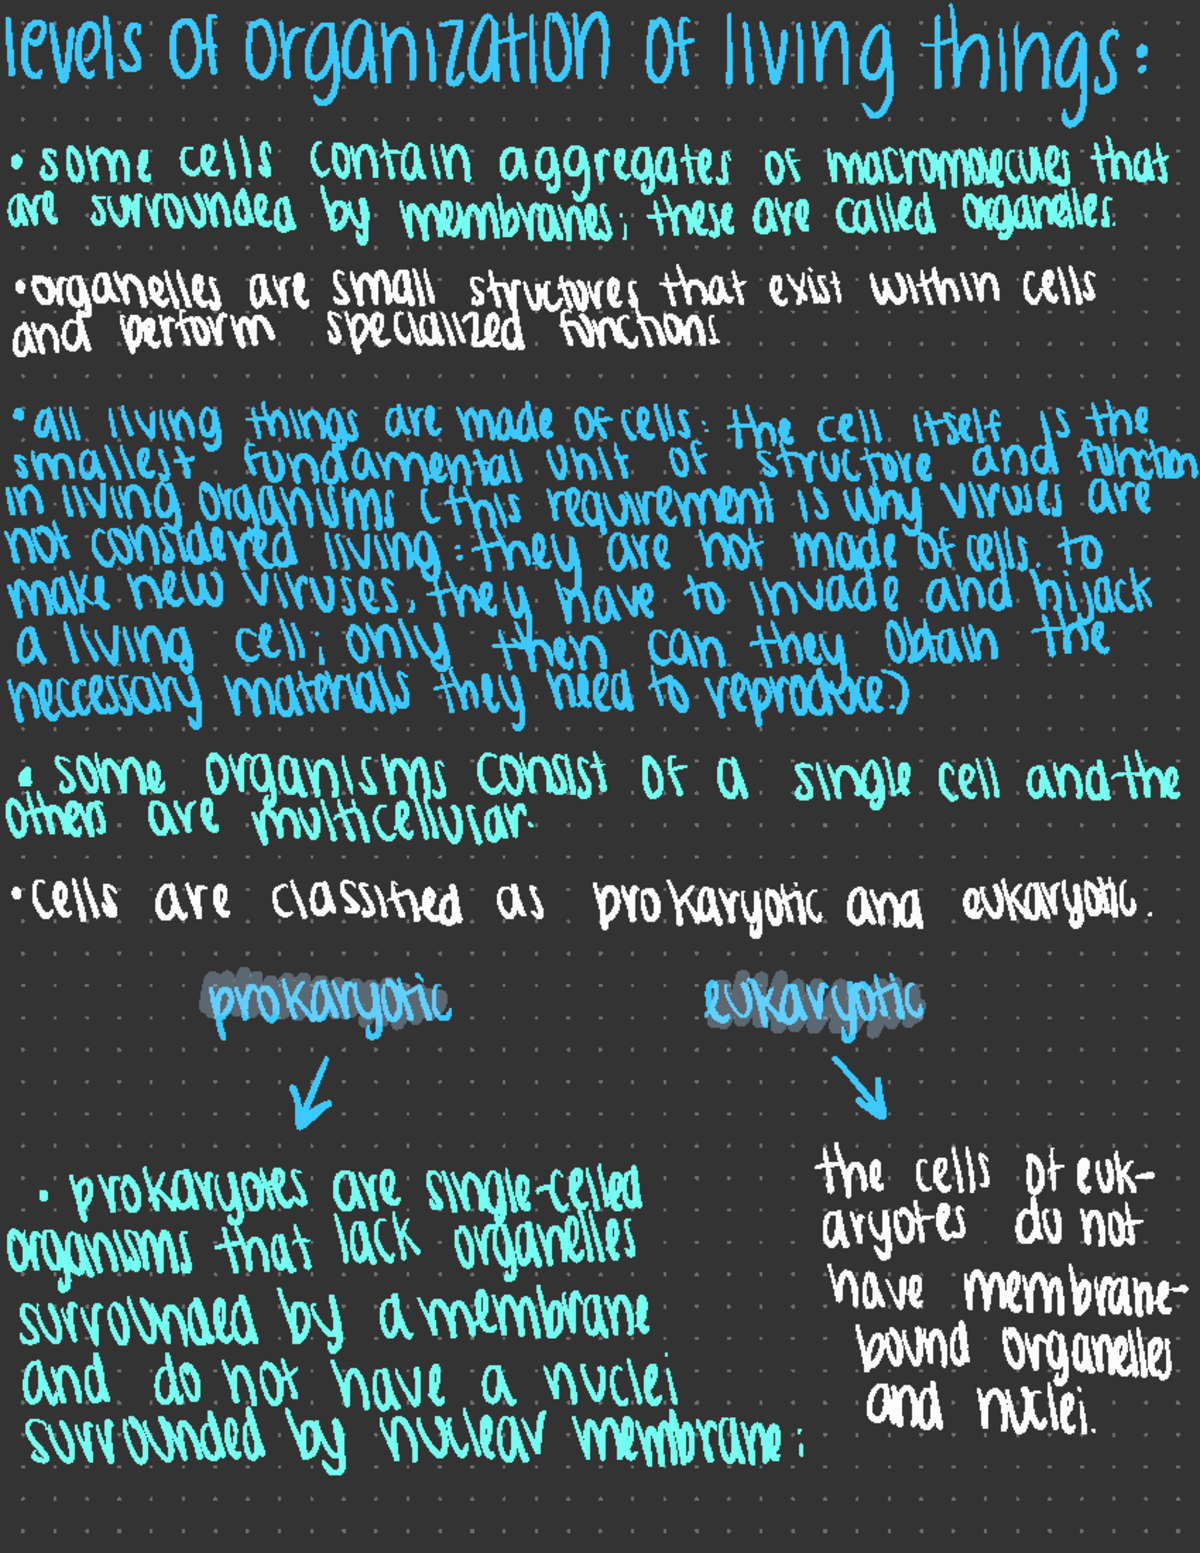 levels of organization of living things:
• some cells contain aggregates of macromolecules that
are surrounded by membranes; these are called organelles.
• organelles are small structures that exist within cells
and perform specialized functions
• all living things are made of cells: the cell itself is the
smallest fundamental unit of structure and function
in living organisms (this requirement is why viruses are
not considered living: they are not made of cells. to
make new viruses, they have to invade and hijack
a living cell; only then can they obtain the
neccessary materials they need to reproduce.)
• some organisms consist of a single cell and the
others are multicellular.
• cells are classified as prokaryotic and eukaryotic.
prokaryotic eukaryotic
• prokaryotes are single-celled
organisms that lack organelles
surrounded by a membrane
and do not have a nuclei
surrounded by nuclear membrane;
the cells of euk-
aryotes do not
have membrane-
bound organelles
and nuclei.